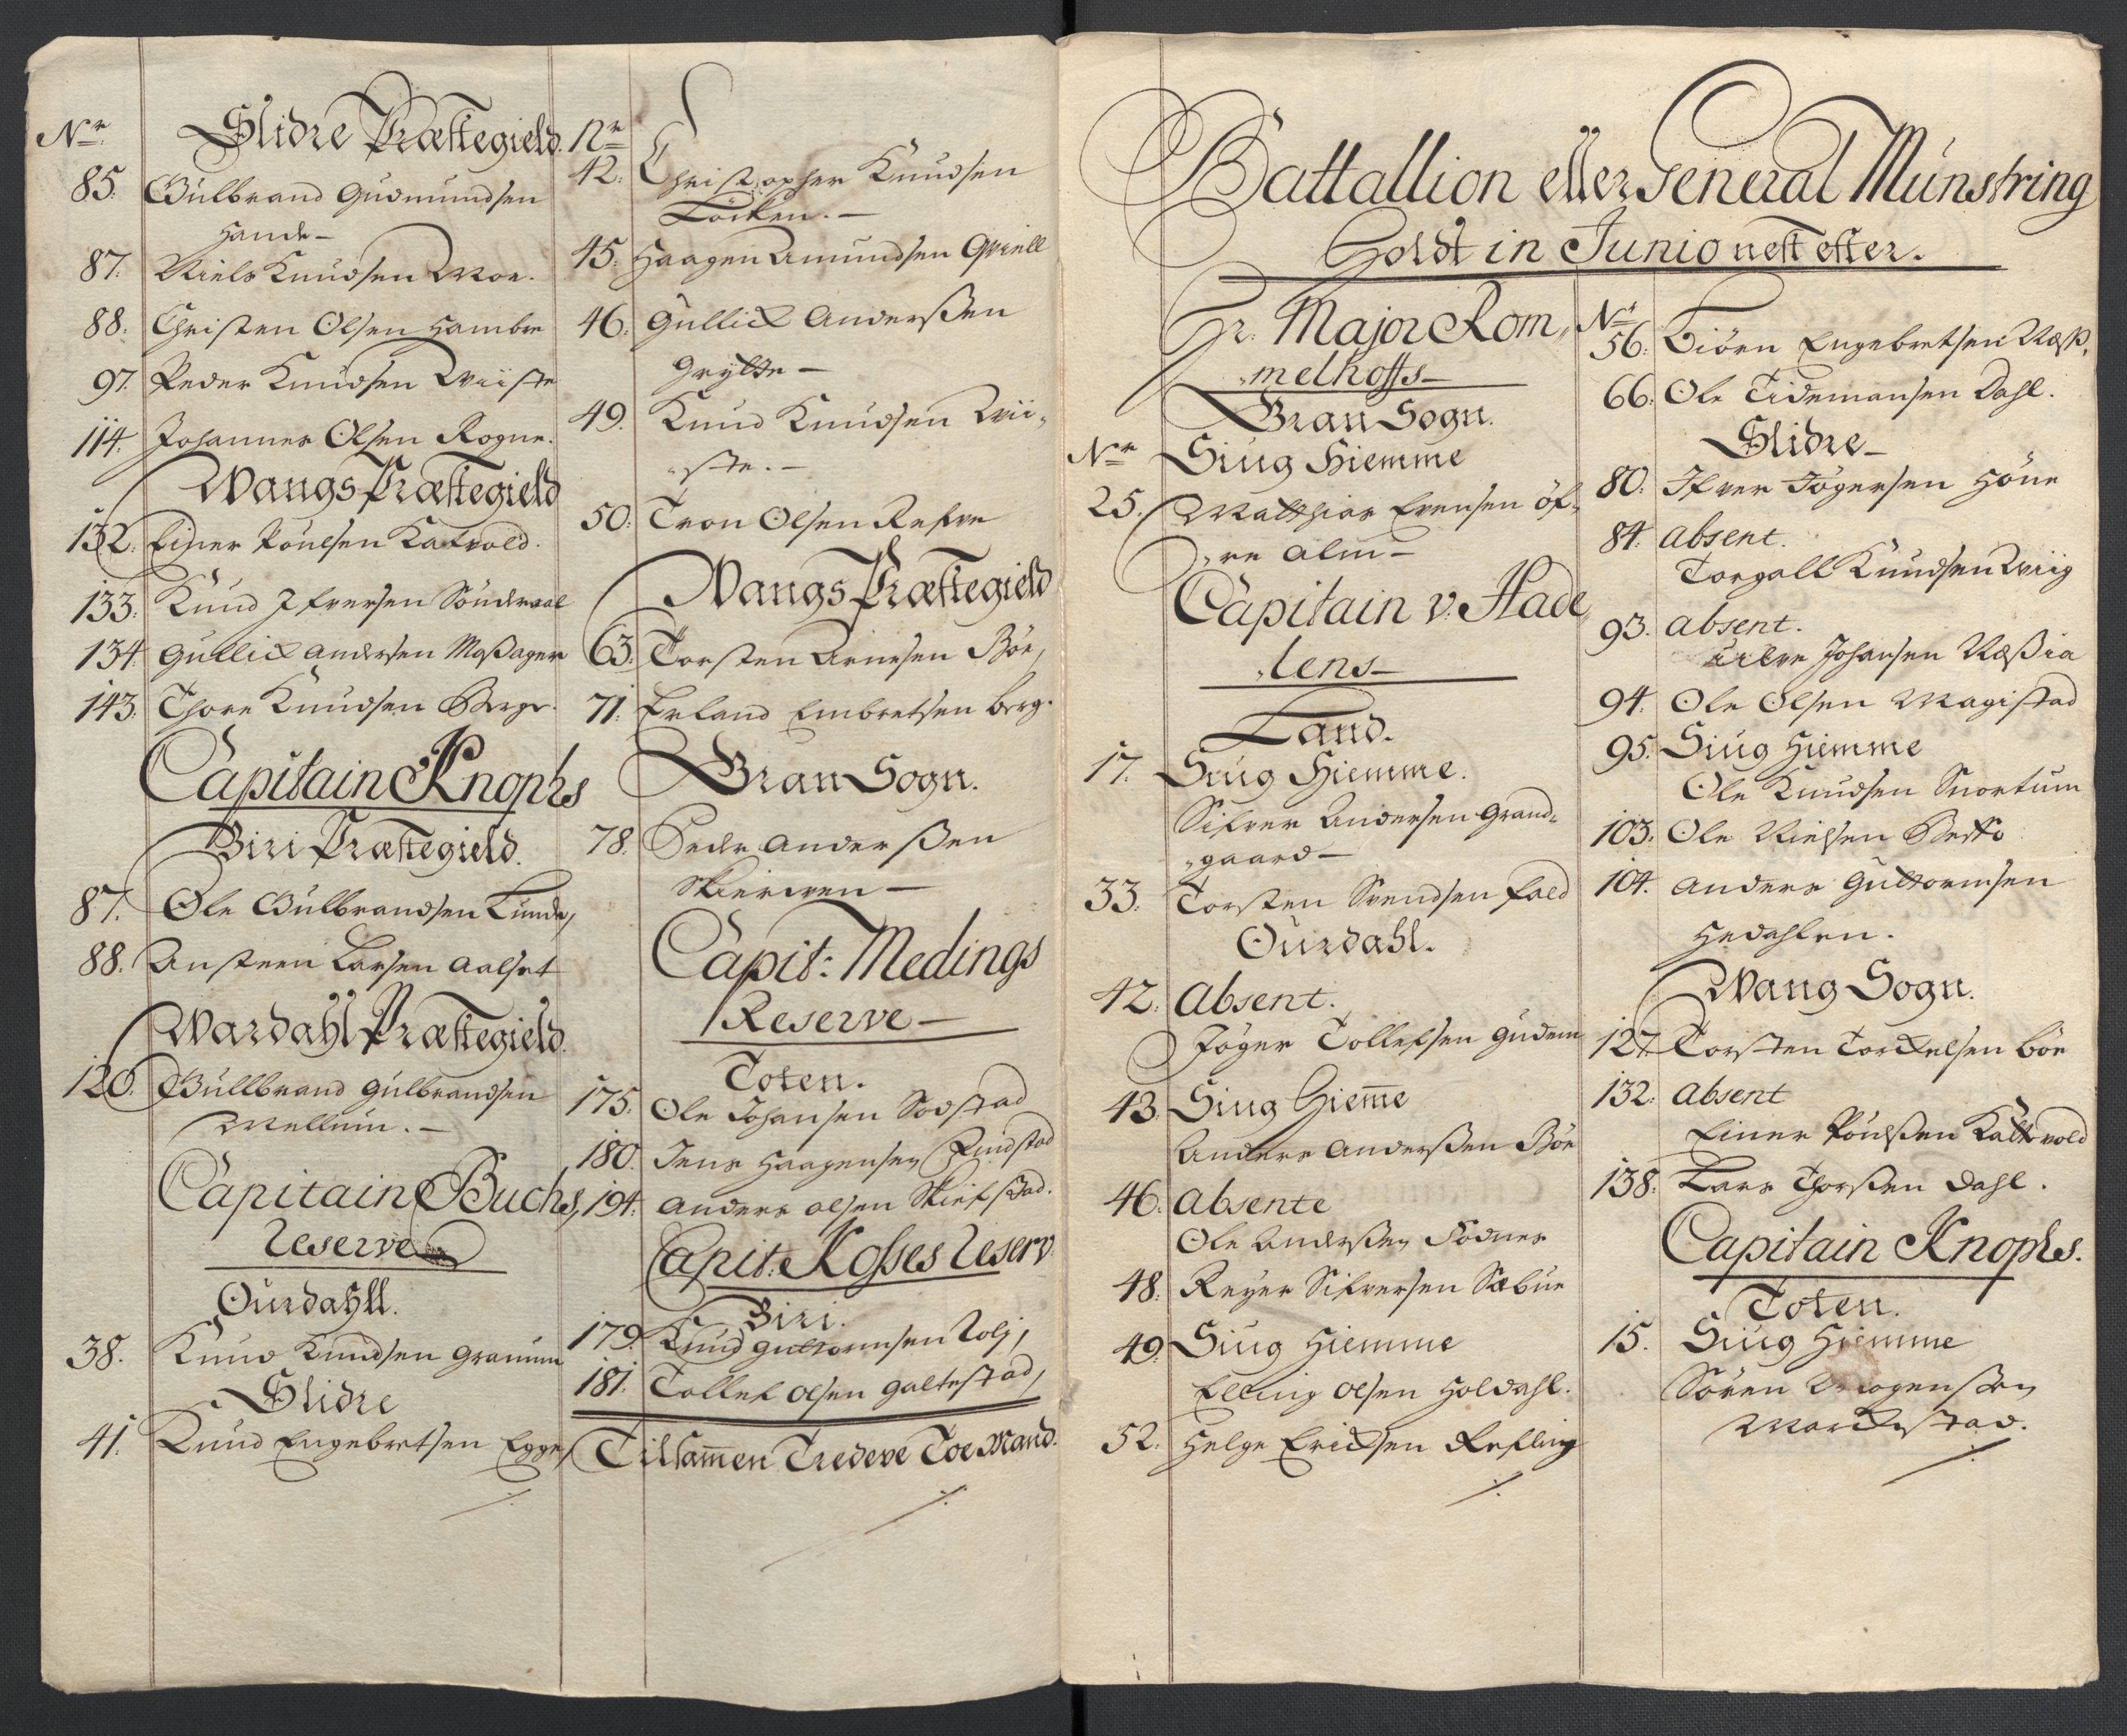 Nr. Slidre Præstegield.
85. Gulbrand Gudmundsen
Hande –
87. Niels Knudsen Moe.
88. Christen Olsen Hambre
97. Peder Knudsen Wiiste
114. Johannes Olsen Rogne.
Wangs Præstegield
132. Einer Poulsen Katvold.
133. Knud Ifversen Sönderaal
134. Gullick Andersen Moßager
143. Thore Knudsen Berge.
Capitain Knophs
Biri Præstegield.
87. Ole Gulbrandsen Lunde,
88. Austeen Larsen Aalset
Wardahl Præstegield.
120. Gullbrand Gulbrandsen
Mellum. –
Capitain Buchs,
Reserve
Ourdahll.
38. Knud Knudsen Granum
Slidre
41. Knud Engebretsen Egge,
Nr.
42. Christopher Knudsen
Löcken. –
45. Haagen Amundsen Qviell
46. Gullick Anderßen
Grytte –
49. Knud Knudsen Wii-
ste. –
50. Tron Olsen Refve
Wangs Præstegield
63. Torsten Arnesen Böe,
71. Erland Embretsen Berg.
Gran Sogn.
78. Peder Anderßen
Skierwen –
Capit: Medings
Reserve –
Toten.
175. Ole Johansen Sodstad
180. Jens Haagensen Rudstad
194. Anders Olsen Skiefstad.
Capit: Koßes Reserv.
Biri.
179. Knud Guttormsen Rolj,
181. Tollef Olsen Galtestad,
Tilsam̅en Tredeve Toe Mand.
Battallion eller General Münstring
Holdt in Junio nest efter.
Hr. Major Rom,
,melhoffs –
Gran Sogn.
Nr. Siug Hiemme
25. Matthias Evensen Öf-
,re Alm –
Capitain v: Hade,
,lens –
Land.
17. Siug Hiemme.
Sifver Andersen Grand-
,gaard –
33. Torsten Svendsen Fald
Ourdahl.
42. Absent.
Jöger Tollefsen Gudem
43. Siug Hiem̅e
Anders Anderßen Böe
46. Absente
Ole Anderßen Födnes
48. Reyer Sifversen Sæbue
49. Siug Hiemme
Elling Olsen Holdahl.
52. Helge Ericksen Refling
Nr.
56. Biörn Engebretsen Næß.
66. Ole Tidemansen Dahl.
Slidre –
80. Ifver Jögersen Höne
84. Absent.
Torgall Knudsen Wiig
93. Absent.
Johansen Næßia
94. Ole Olsen Magistad
95. Siug Hiemme
Ole Knudsen Snortum
103. Ole Nielsen
104. Anders Guttormsen
Hedahlen.
Wang Sogn.
127. Torsten Torckelsen Böe
132. Absent
Einer Poulßen Kattvold
138. Lars Thorßen Dahl.
Capitain Knophs.
Toten.
15. Siug Hiemme
Sören Mogenßen
Markestad.